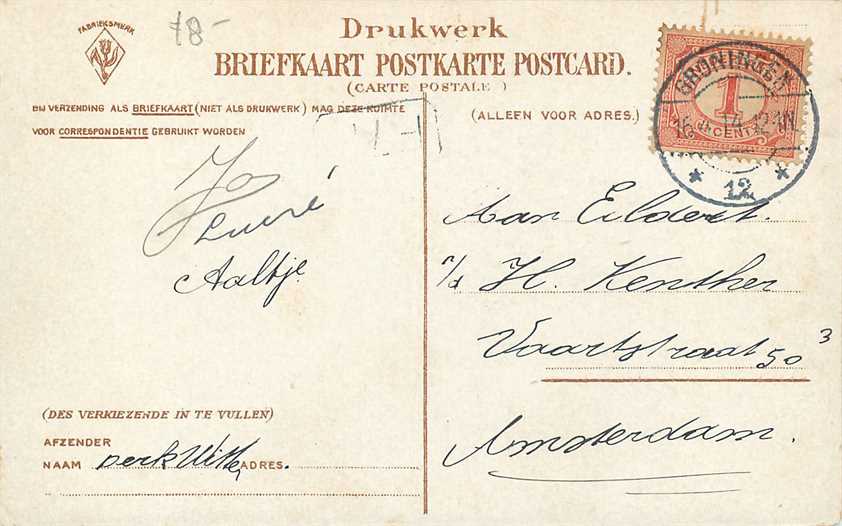 FABRIEKSMERK
78-
Drukwerk
BRIEFKAART POSTKARTE POSTCARD.
(CARTE POSTALE)
BIJ VERZENDING ALS BRIEFKAART (NIET ALS DRUKWERK) MAG DEZE RUIMTE
VOOR CORRESPONDENTIE GEBRUIKT WORDEN
(ALLEEN VOOR ADRES.)
GRONINGEN
1
CENT
12
Aaltje
Aan Eildert.
H. Kenther
Vaartstraat 50 3
Amsterdam.
(DES VERKIEZENDE IN TE VULLEN)
AFZENDER
NAAM Derk Witte ADRES.